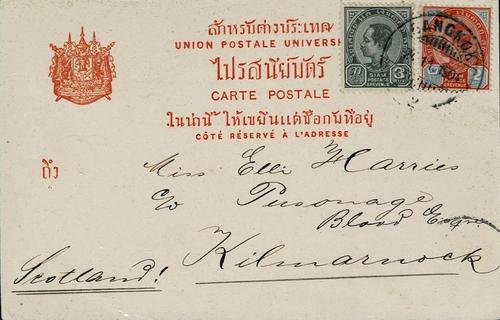 สำหรับต่างประเทศ
UNION POSTALE UNIVERS
ไปรสนียบัตร์
CARTE POSTALE
ในน่านี้ ให้เขียนแต่ชื่อกับที่อยู่
CÔTÉ RÉSERVÉ À L'ADRESSE
SIAM
POSTAGE
&REVENUE
3
POSTAGE
&REVENUE
2
BANGKOK
2
ถึง
Miss Elli Harries
c/o Pusonage
Blood
Kilmarnock
Scotland!